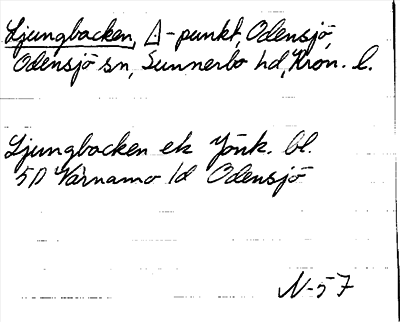 Ljungbacken, △-punkt, Odensjö,
Odensjö sn, Sunnerbo hd, Kron. l.
Ljungbacken ek Jönk. bl.
5D Värnamo 1d Odensjö
N-57